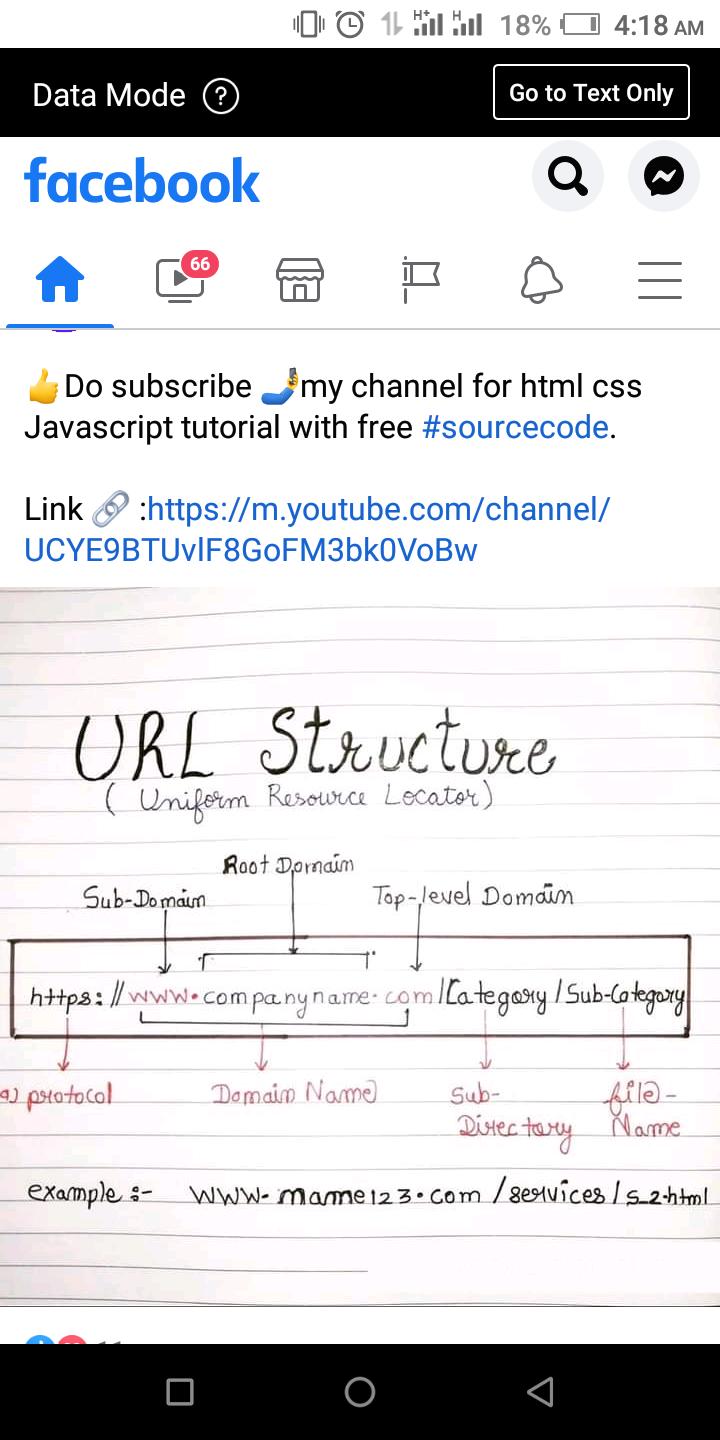 18% 4:18 AM
Data Mode ? Go to Text Only
facebook
66
👍Do subscribe 🤳my channel for html css
Javascript tutorial with free #sourcecode.
Link 🔗 :https://m.youtube.com/channel/
UCYE9BTUvlF8GoFM3bk0VoBw
URL Structure
( Uniform Resource Locator)
Root Domain
Sub-Domain Top-level Domain
https://www.companyname.com/Category/Sub-Category
a) protocol Domain Name Sub-Directory file-Name
example :- www.mame123.com/services/s_2.html